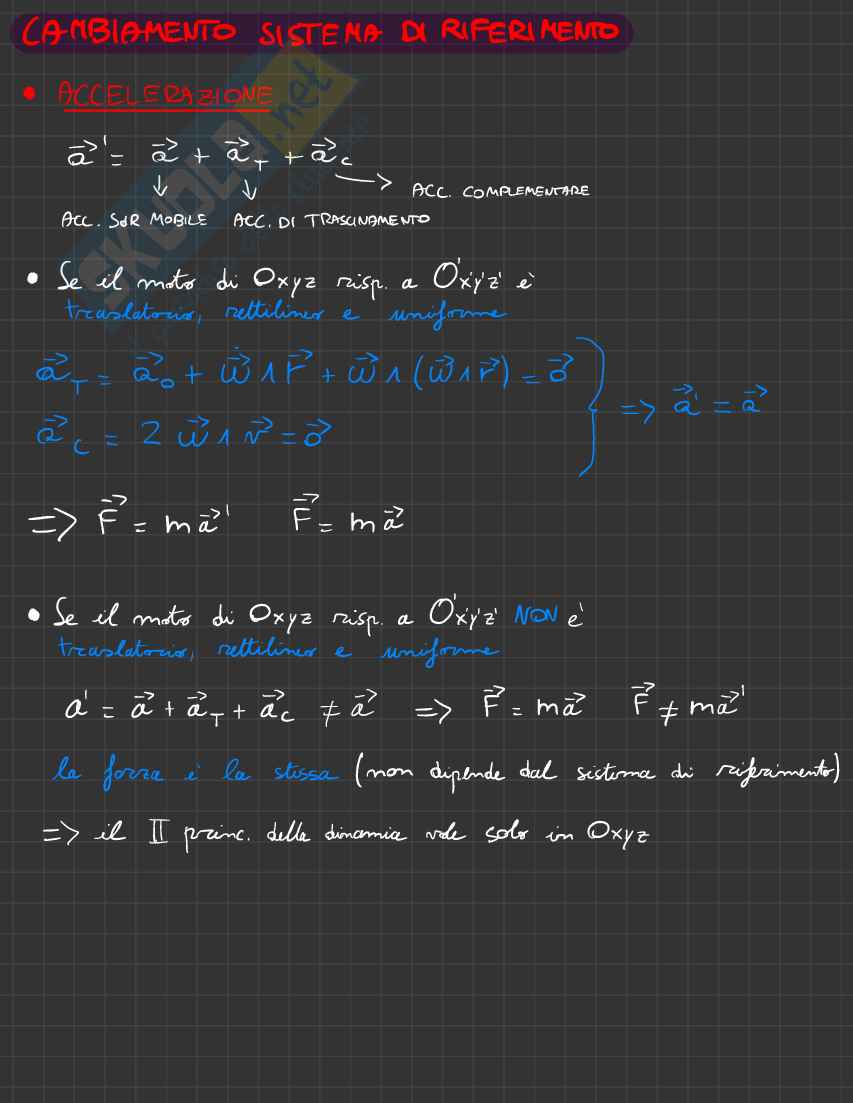 CAMBIAMENTO SISTEMA DI RIFERIMENTO
• ACCELERAZIONE
a⃗' = a⃗ + a⃗_T + a⃗_C
→ ACC. COMPLEMENTARE
↓ ↓
ACC. SdR MOBILE ACC. DI TRASCINAMENTO
SKUOLA.net
• Se il moto di Oxyz risp. a O'x'y'z' è
traslatorio, rettilineo e uniforme
a⃗_T = a⃗_O + ω⃗̇ ∧ r⃗ + ω⃗ ∧ (ω⃗ ∧ r⃗) = 0⃗
a⃗_C = 2 ω⃗ ∧ v⃗ = 0⃗
} => a⃗' = a⃗
=> F⃗ = ma⃗' F⃗ = ma⃗
• Se il moto di Oxyz risp. a O'x'y'z' NON è
traslatorio, rettilineo e uniforme
a' = a⃗ + a⃗_T + a⃗_C ≠ a⃗ => F⃗ = ma⃗ F⃗ ≠ ma⃗'
la forza è la stessa (non dipende dal sistema di riferimento)
=> il II princ. della dinamia vale solo in Oxyz